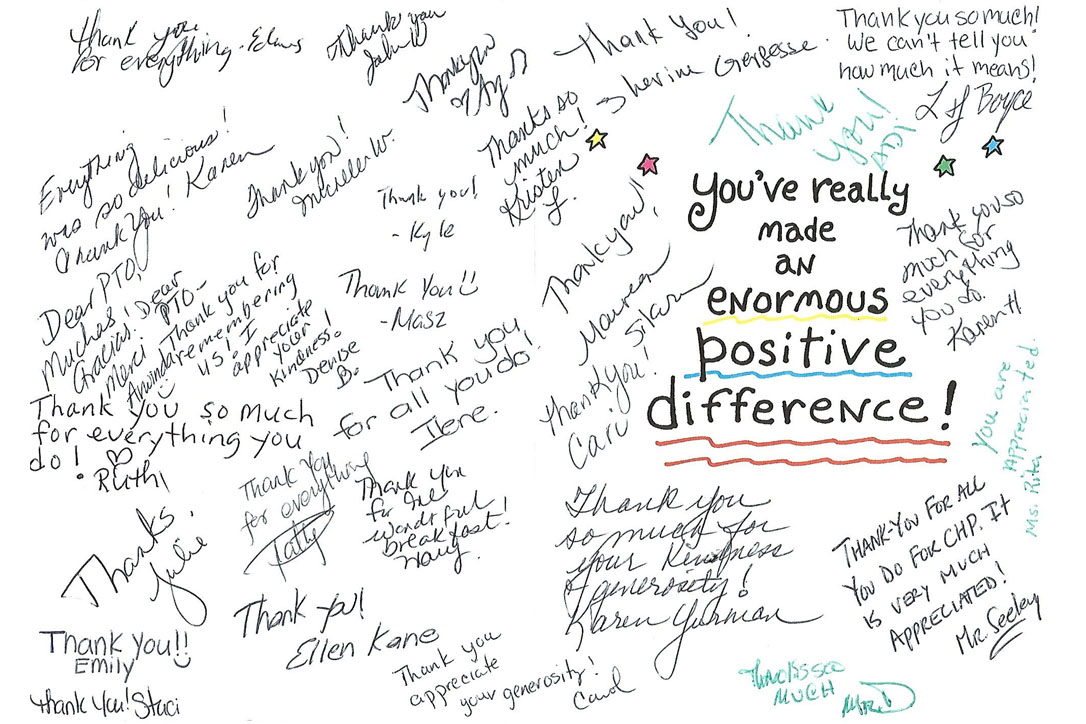 Thank you
for everything. Edaws
Thank you
Thank you
Thank You!
Sherine Gergesse.
Thank you so much!
We can't tell you
how much it means!
L & J Boyce
Everything
was so delicious!
Thank You! Karen
Thank you!
Michelle W.
Thank you!
- Kyle
Thanks so
much!
Kristen
L.
Thank
you!
You've really
made
an
enormous
positive
difference!
Thank you!
Maureen
Thank you so
much for
everything
you do.
Karen H
Dear PTO,
Muchas
Gracias!
Merci
Dear
PTO-
Thank you for
remembering
us! I
appreciate
your
kindness!
Denise
B.
Thank You
- Masz
Thank you
for all you do!
Ilene.
Thank you!
Cari
You are
Appreciated.
Ms. Rita
Thank you so much
for everything you
do!
Ruthi
Thank You
for everything
Patty
Thank you
for the
wonderful
breakfast!
Thanks,
Julie
Thank you
so much for
your kindness
& generosity!
Karen Yurman
Thank-you for all
you do for CHP. It
is very much
appreciated!
Mr. Seeley
Thank you!
Ellen Kane
Thank You!!
Emily
Thank You! Staci
Thank you
appreciate
your generosity!
Carol
Thanks so
much
Mrs. D